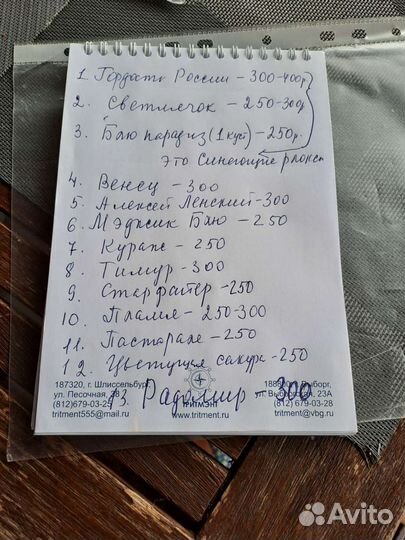 1. Гордость России - 300-400р
2. Светлячок - 250-300р
3. Блю парадиз (1 куст) - 250р.
это Синеющие флоксы
4. Венец - 300
5. Алексей Ленский - 300
6. Мэджик Блю - 250
7. Кураж - 250
8. Тимур - 300
9. Старфайтер - 250
10. Пламя - 250-300
11. Пастораль - 250
12. Цветущая сакура - 250
13. Радомир - 300
187320, г. Шлиссельбург
ул. Песочная,
(812)679-03-2
tritment555@mail.ru
ТРИТМЭНТ
www.tritment.ru
Выборг,
ул. Выборгская, 23А
(812) 679-03-28
tritment@vbg.ru
Avito